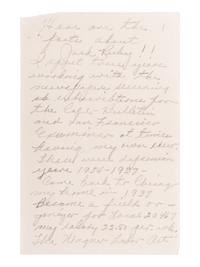 Here are the
facts about
Jack Ruby!!
I spent three years
working with the
newspapers securing
subscriptions for
the Call-Bulletin
and San Francisco
Examiner at times
having my own crew.
These were depression
years 1934-1937-
Came back to Chicago
my home in 1937
Became a field or-
ganizer for Local 20467
my salary 22.50 per wk.
The Wagner Labor Act